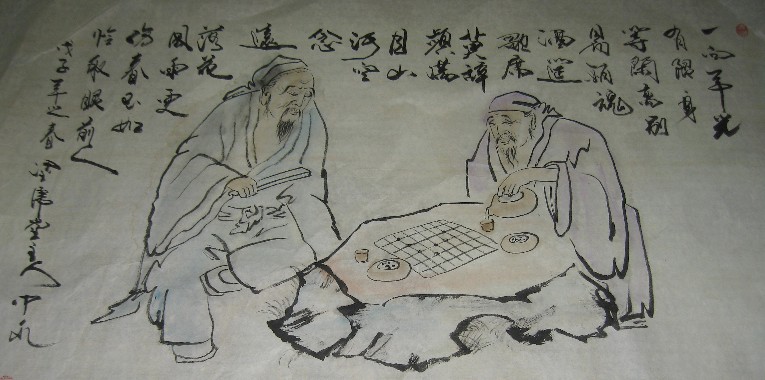 一向年光
有限身
等閑离别
易銷魂
酒筵
歌席
莫辞
頻滿
目山
河空
念
遠
落花
風雨更
傷春不如
怜取眼前人
戊子年之春
堂主人